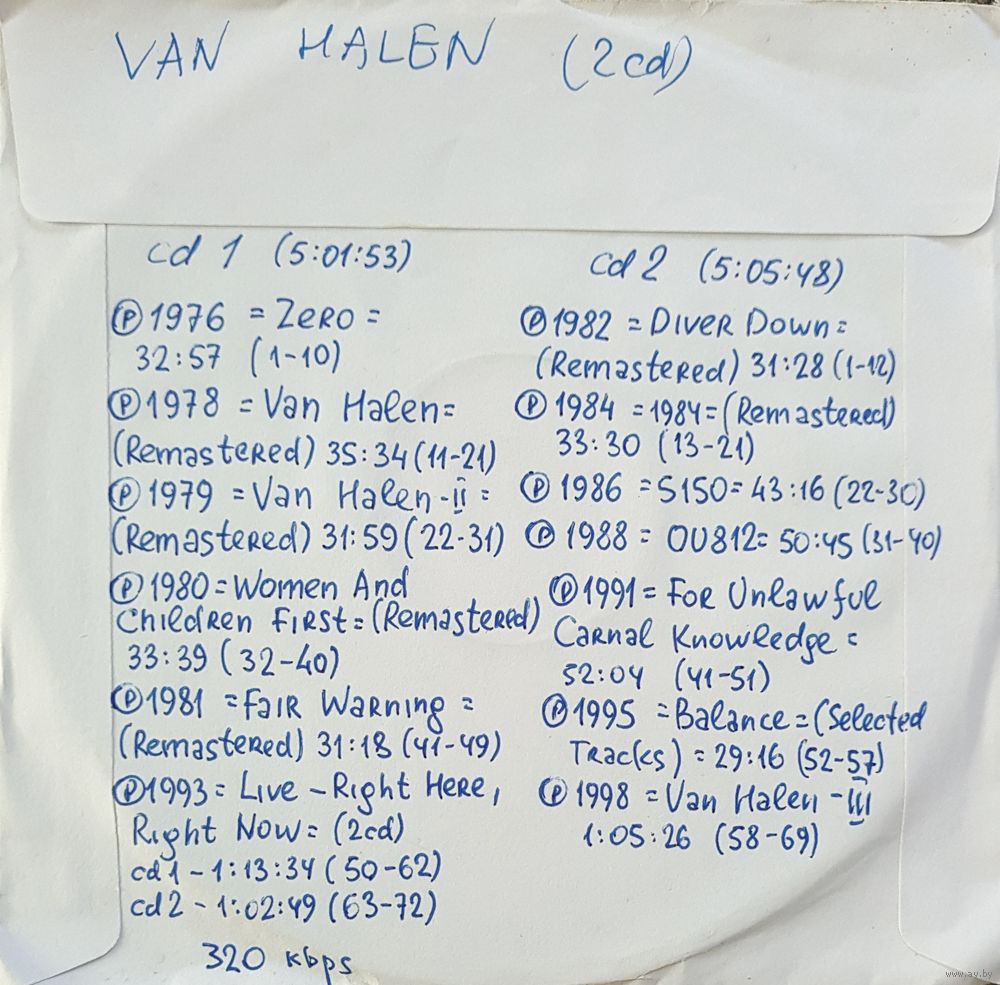 VAN HALEN (2cd)
cd 1 (5:01:53)
Ⓟ 1976 = Zero =
32:57 (1-10)
Ⓟ 1978 = Van Halen =
(Remastered) 35:34 (11-21)
Ⓟ 1979 = Van Halen - II =
(Remastered) 31:59 (22-31)
Ⓟ 1980 = Women And
Children First = (Remastered)
33:39 (32-40)
Ⓟ 1981 = Fair Warning =
(Remastered) 31:18 (41-49)
Ⓟ 1993 = Live - Right Here,
Right Now = (2cd)
cd 1 - 1:13:34 (50-62)
cd 2 - 1:02:49 (63-72)
320 kbps
cd 2 (5:05:48)
Ⓟ 1982 = Diver Down =
(Remastered) 31:28 (1-12)
Ⓟ 1984 = 1984 = (Remastered)
33:30 (13-21)
Ⓟ 1986 = 5150 = 43:16 (22-30)
Ⓟ 1988 = OU812 = 50:45 (31-40)
Ⓟ 1991 = For Unlawful
Carnal Knowledge =
52:04 (41-51)
Ⓟ 1995 = Balance = (Selected
Tracks) = 29:16 (52-57)
Ⓟ 1998 = Van Halen - III
1:05:26 (58-69)
www.ay.by